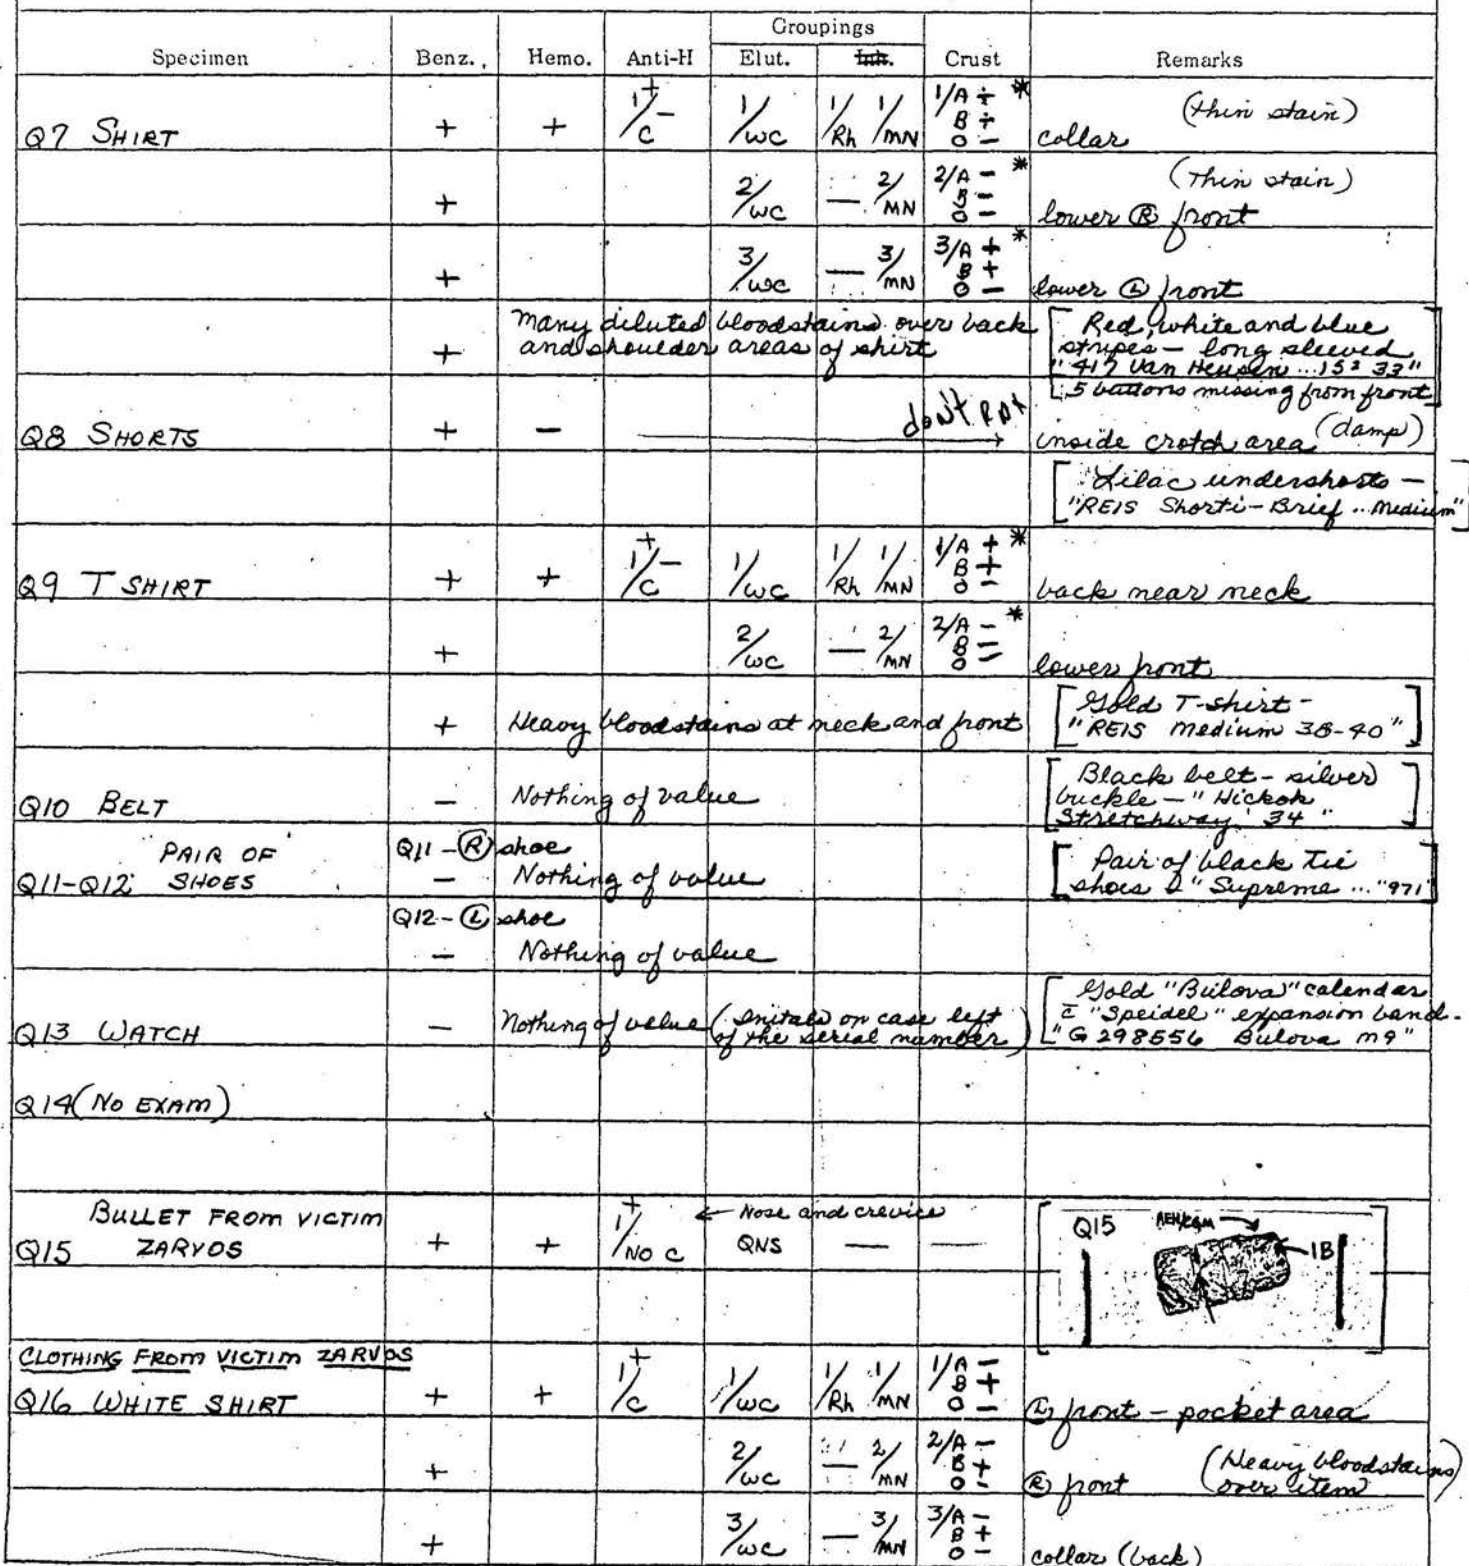 Groupings
Specimen Benz. Hemo. Anti-H Elut. Inh. Crust Remarks
Q7 SHIRT + + 1/C + - 1/WC 1/Rh 1/MN 1/A + * collar (thin stain)
B +
O -
+ 2/WC — 2/MN 2/A - * lower Ⓡ front (Thin stain)
B -
O -
+ 3/WC — 3/MN 3/A + * lower Ⓛ front
B +
O -
+ Many diluted bloodstains over back
and shoulder areas of shirt
[Red, white and blue
stripes - long sleeved
"417 Van Heusen...15² 33"
5 buttons missing from front]
Q8 SHORTS + - don't → inside crotch area (damp)
[Lilac undershorts -
"REIS Shorti-Brief .. Medium"]
Q9 T SHIRT + + 1/C + - 1/WC 1/Rh 1/MN 1/A + * back near neck
B +
O -
+ 2/WC — 2/MN 2/A - * lower front
B -
O -
+ Heavy bloodstains at neck and front
[Gold T-shirt -
"REIS Medium 38-40"]
Q10 BELT - Nothing of value
[Black belt - silver
buckle - "Hickok
Stretchway 34"]
PAIR OF
Q11-Q12 SHOES
Q11-Ⓡ shoe
- Nothing of value
[Pair of black tie
shoes "Supreme ... "971"]
Q12-Ⓛ shoe
- Nothing of value
Q13 WATCH - Nothing of value (Initals on case left
of the serial number)
[Gold "Bulova" calendar
c̄ "Speidel" expansion band.
"G 298556 Bulova M9"]
Q14 (NO EXAM)
BULLET FROM VICTIM
Q15 ZARVOS + + 1/NO C + ← Nose and crevice
QNS — —
[Q15 1B]
CLOTHING FROM VICTIM ZARVOS
Q16 WHITE SHIRT + + 1/C + 1/WC 1/Rh 1/MN 1/A - Ⓛ front - pocket area
B +
O -
+ 2/WC — 2/MN 2/A - Ⓡ front (Heavy bloodstains
over item)
B +
O -
+ 3/WC — 3/MN 3/A - collar (back)
B +
O -